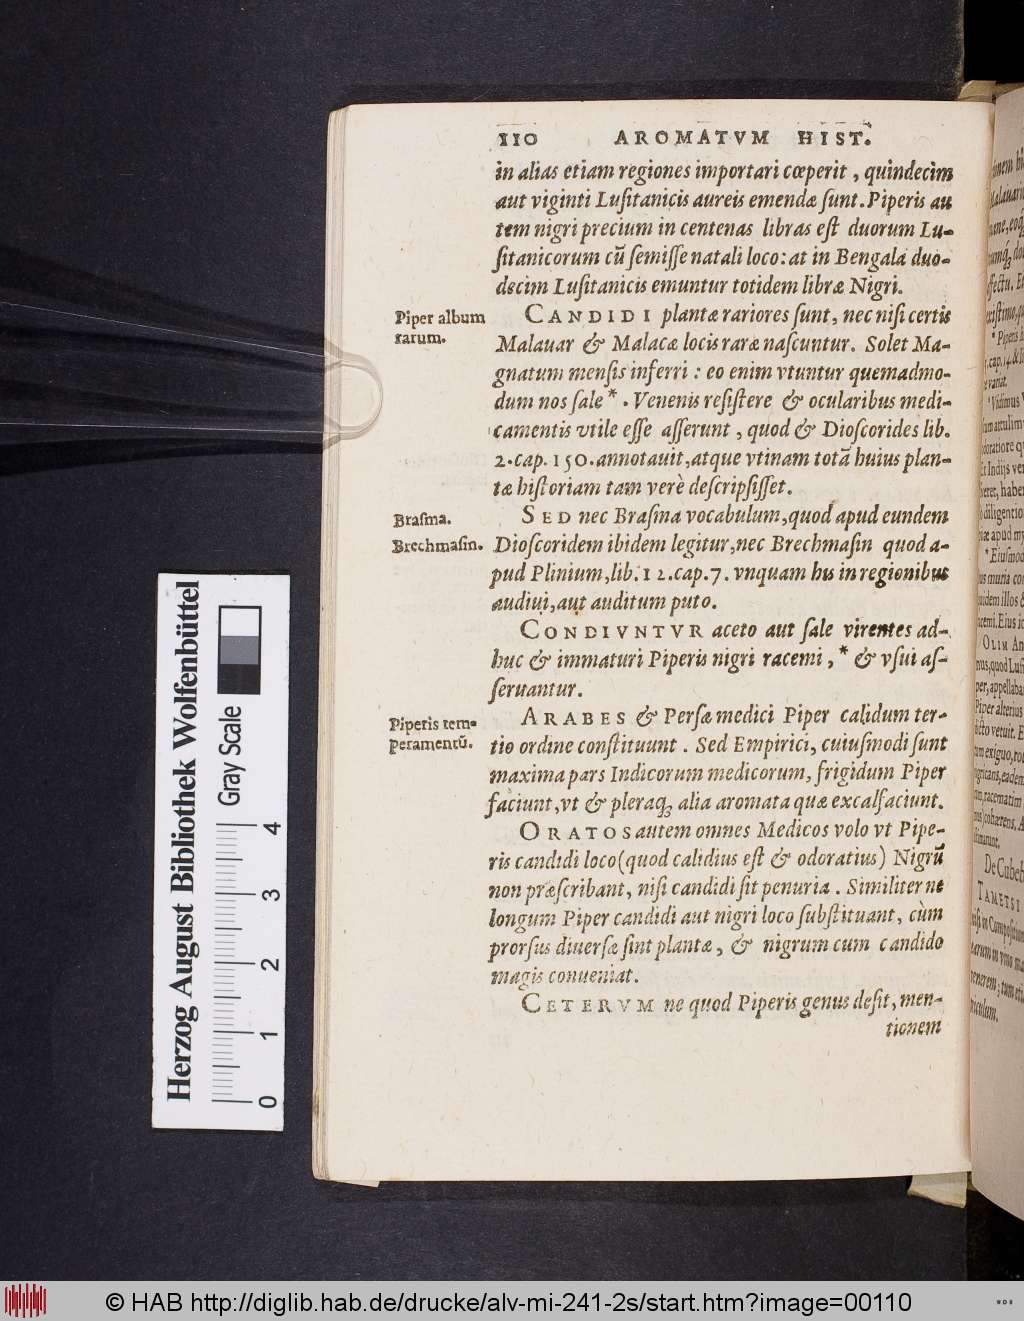 110 AROMATVM HIST.
in alias etiam regiones importari cœperit, quindecim
aut viginti Luſitanicis aureis emendæ ſunt. Piperis au
tem nigri precium in centenas libras eſt duorum Lu-
ſitanicorum cū ſemiſſe natali loco: at in Bengala duo-
decim Luſitanicis emuntur totidem libræ Nigri.
Piper album
rarum.
CANDIDI plantæ rariores ſunt, nec niſi certis
Malauar & Malacæ locis raræ naſcuntur. Solet Ma-
gnatum menſis inferri: eo enim vtuntur quemadmo-
dum nos ſale*. Venenis reſiſtere & ocularibus medi-
camentis vtile eſſe aſſerunt, quod & Dioſcorides lib.
2. cap. 150. annotauit, atque vtinam totā huius plan-
tæ hiſtoriam tam verè deſcripſiſſet.
Braſma.
Brechmaſin.
SED nec Braſma vocabulum, quod apud eundem
Dioſcoridem ibidem legitur, nec Brechmaſin quod a-
pud Plinium, lib. 12. cap. 7. vnquam his in regionibus
audiui, aut auditum puto.
CONDIVNTVR aceto aut ſale virentes ad-
huc & immaturi Piperis nigri racemi,* & vſui aſ-
ſeruantur.
Piperis tem-
peramentū.
ARABES & Perſæ medici Piper calidum ter-
tio ordine conſtituunt. Sed Empirici, cuiuſmodi ſunt
maxima pars Indicorum medicorum, frigidum Piper
faciunt, vt & pleraq; alia aromata quæ excalfaciunt.
ORATOS autem omnes Medicos volo vt Pipe-
ris candidi loco (quod calidius eſt & odoratius) Nigrū
non præſcribant, niſi candidi ſit penuria. Similiter ne
longum Piper candidi aut nigri loco ſubſtituant, cùm
prorſus diuerſæ ſint plantæ, & nigrum cum candido
magis conueniat.
CETERVM ne quod Piperis genus deſit, men-
tionem
Herzog August Bibliothek Wolfenbüttel
Gray Scale
0 1 2 3 4
© HAB http://diglib.hab.de/drucke/alv-mi-241-2s/start.htm?image=00110